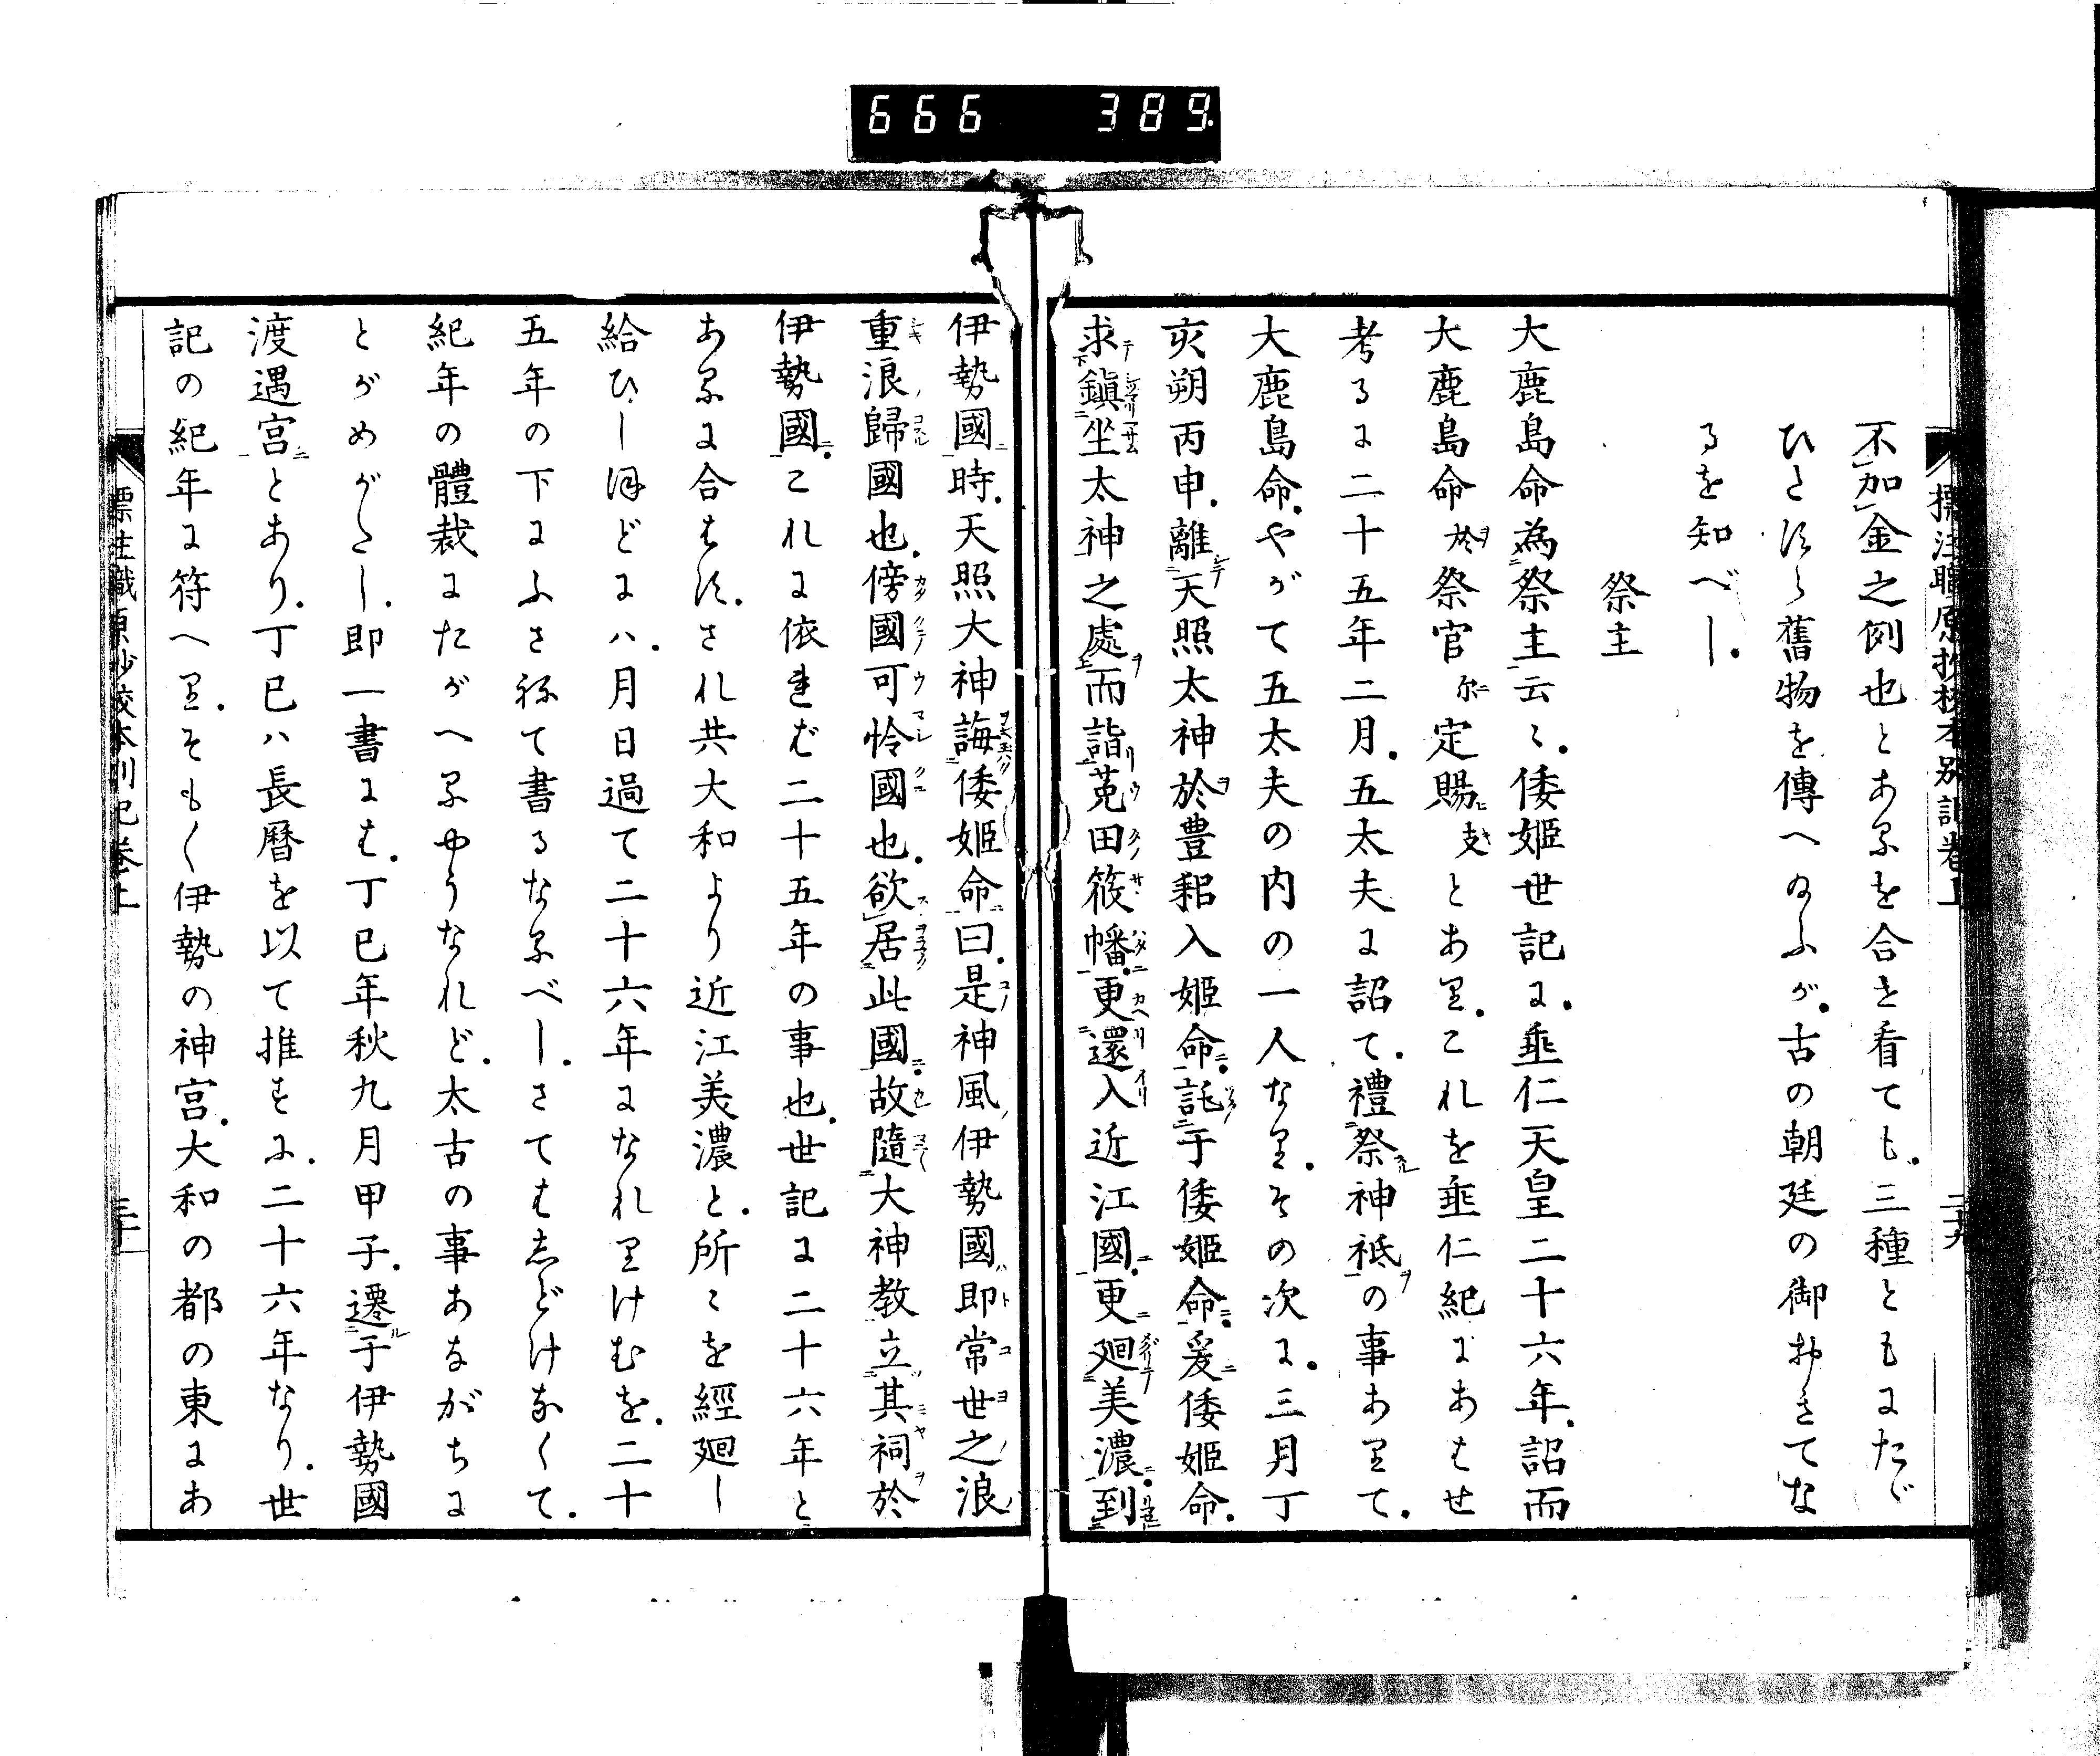 666 389
標注職原抄校本別記卷上 二十九
不加金之例也とあるを合せ看ても三種ともにたゞ
ひとすぢ舊物を傳へ給ふが古の朝廷の御おきてな
るを知べし
祭主
大鹿島命為祭主云々倭姫世記に垂仁天皇二十六年詔而
大鹿島命於祭官尓定賜支とあり これを垂仁紀にあはせ
考るに二十五年二月五太夫に詔て禮祭神祗の事ありて
大鹿島命やがて五太夫の内の一人なりその次に三月丁
亥朔丙申離天照太神於豊耜入姫命託于倭姫命爰倭姫命
求鎮坐太神之處而詣莵田筱幡更還入近江國更廻美濃到
伊勢國時天照大神誨倭姫命曰是神風伊勢國即常世之浪
重浪歸國也傍國可怜國也欲居此國故隨大神教立其祠於
伊勢國これに依れば二十五年の事也世記に二十六年と
あるに合はずされ共大和より近江美濃と所々を經廻し
給ひしほどに八月日過て二十六年になれりけむを二十
五年の下にふさねて書るなるべしさてはしどけなくて
紀年の體裁にたがへるやうなれど太古の事あながちに
とがめがたし即一書には丁巳年秋九月甲子遷于伊勢國
渡遇宮とあり丁巳ハ長暦を以て推すに二十六年なり世
記の紀年に符へりそも〱伊勢の神宮大和の都の東にあ
標注職原抄校本別記卷上 三十